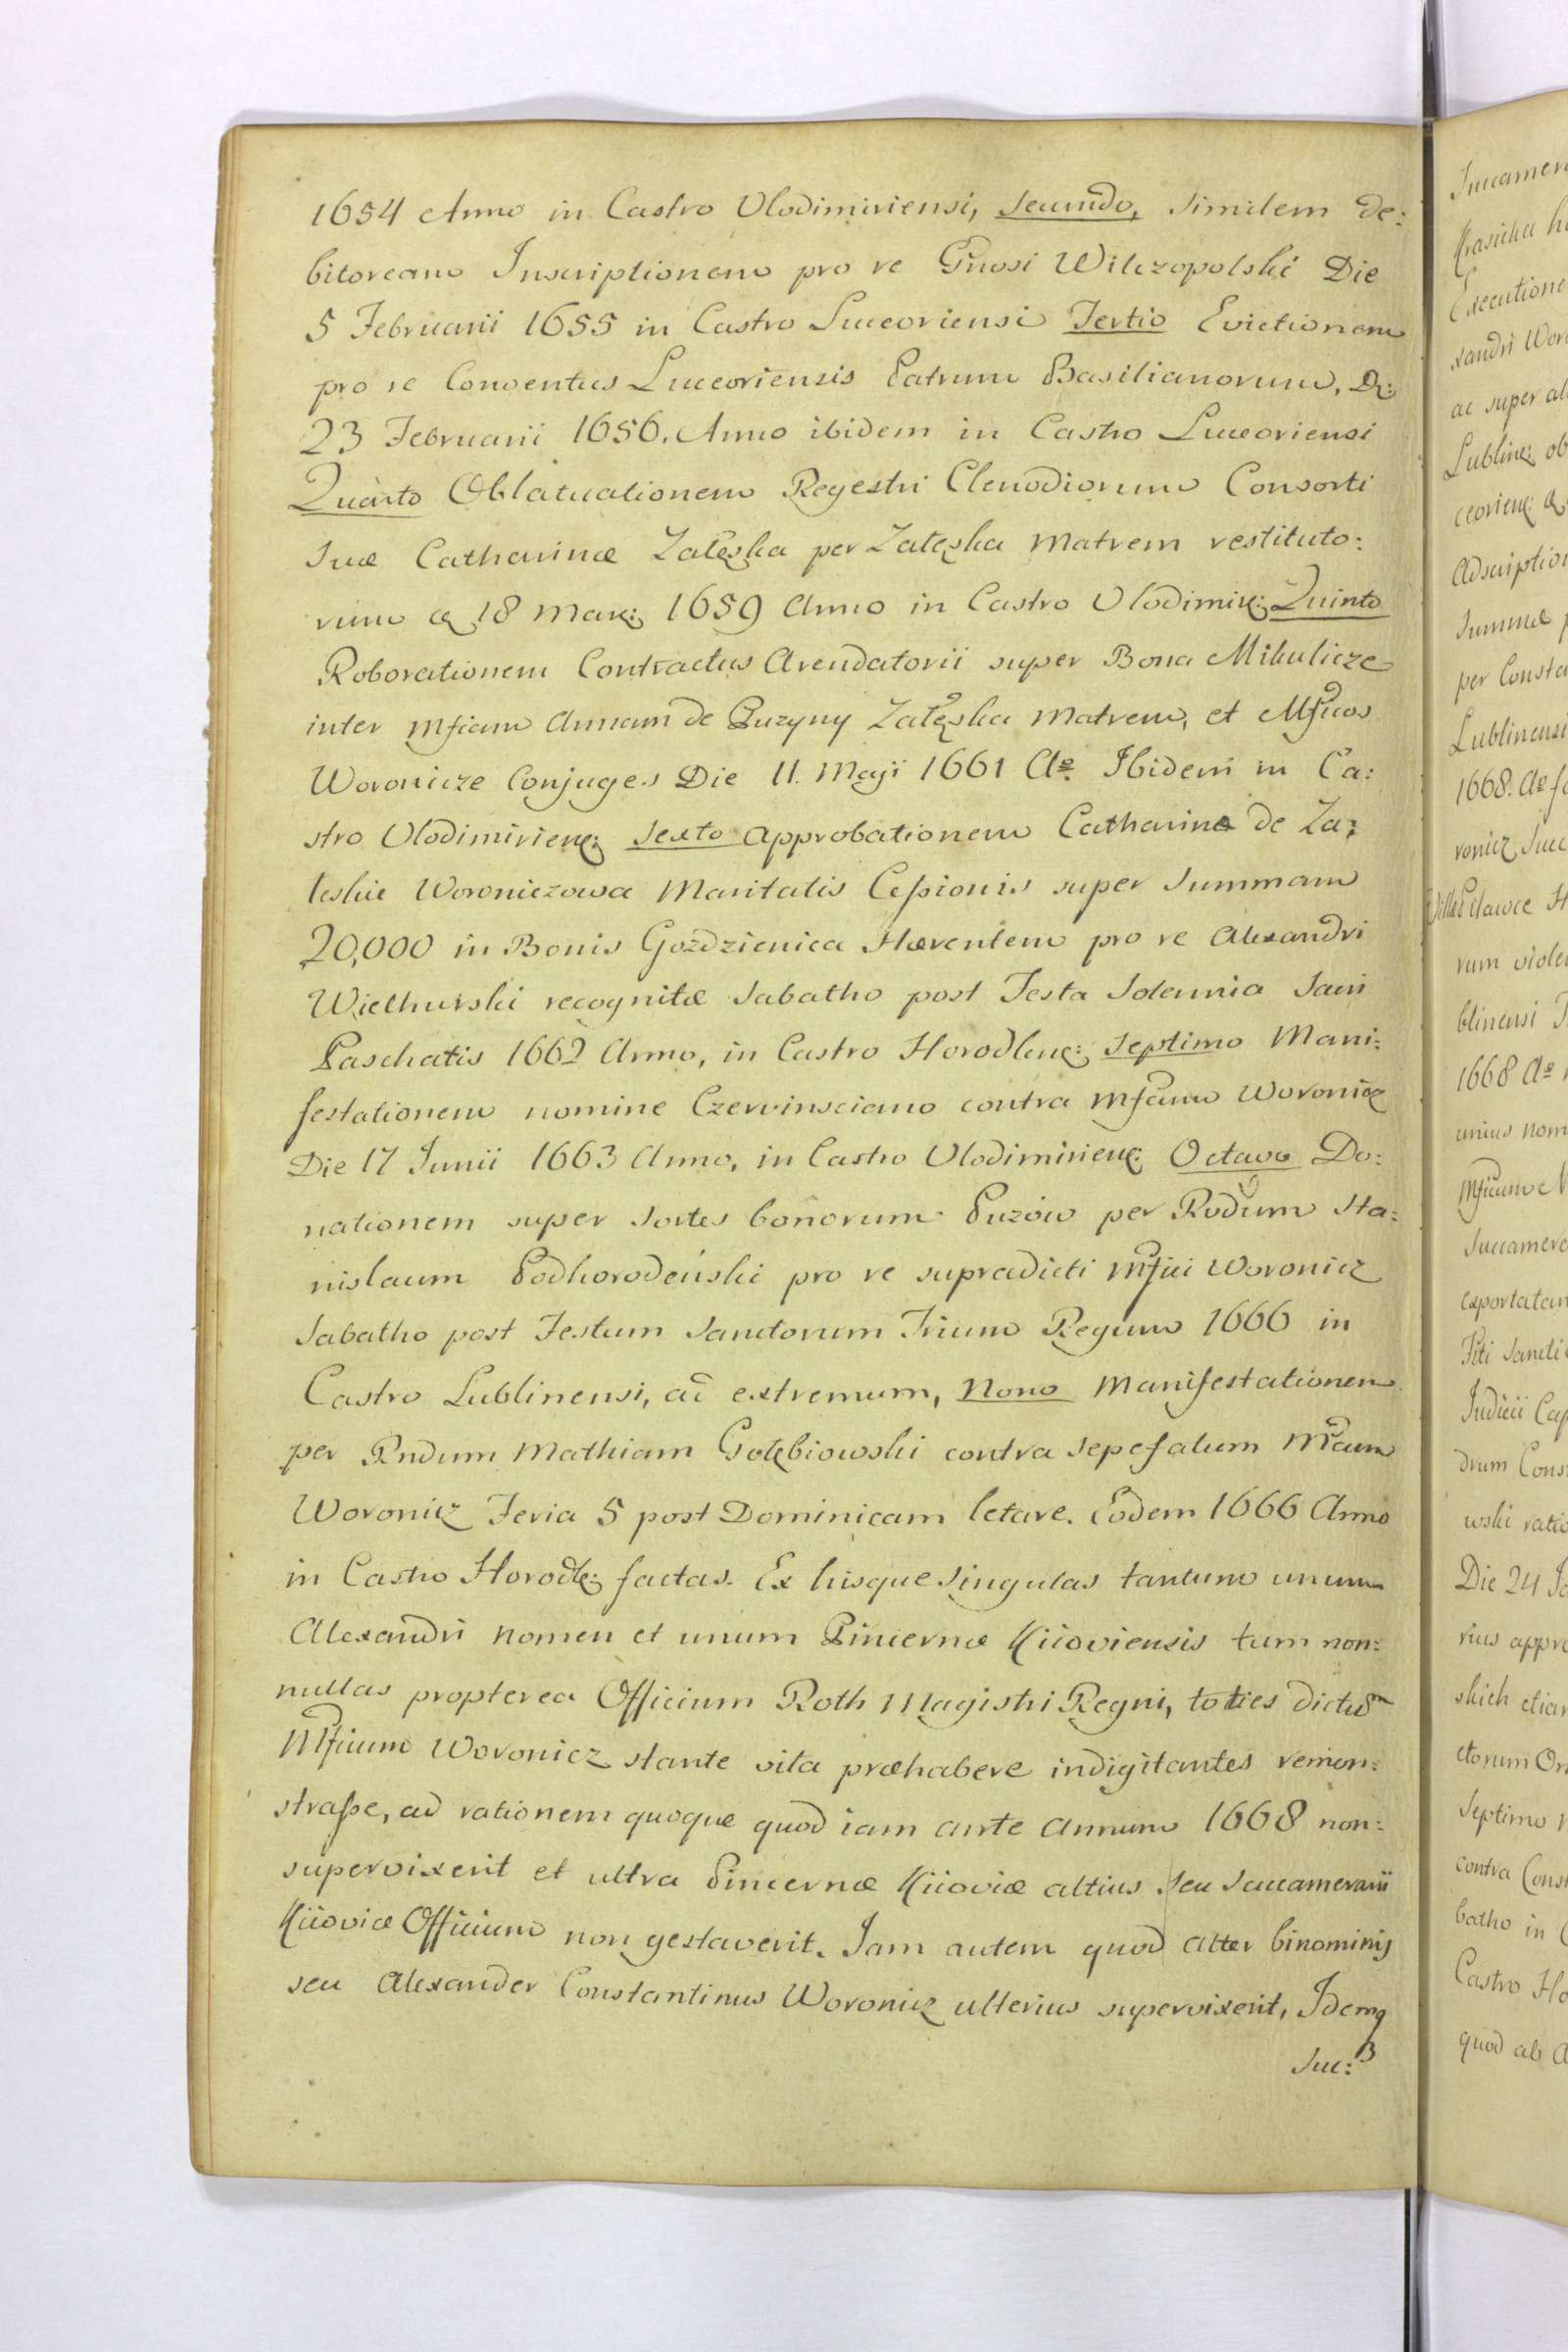 1654 Anno in Castro Vlodimiriensi, Secundo, Similem de:
bitoream Inscriptionem pro re Gnosi Wilczopolski Die
5 Februarii 1655 in Castro Luceoriensi Tertio Evictionem
pro re Conventus Luceoriensis Patrum Basilianorum, D:
23 Februarii 1656. Anno ibidem in Castro Luceoriensi
Quarto Oblatuationem Regestri Clenodiorum Consorti
Suæ Catharinæ Załęska per Załęska Matrem restituto:
rum D 18 Mar: 1659 Anno in Castro Vlodimir: Quinto
Roborationem Contractus Arendatorii super Bona Mikulicze
inter Mficam Annam de Puzyny Załęska Matrem, et Mficos
Woronicze Conjuges Die 11. Maji 1661 Aº. Ibidem in Ca:
stro Vlodimirien: Sexto Approbationem Catharina de Za:
łeskie Woroniczowa Maritalis Cessionis super Summam
20,000 in Bonis Goździenica Hærentem pro re Alexandri
Wielhurski recognitæ Sabatho post Festa Solennia Sacri
Paschatis 1662 Anno, in Castro Horodlen: Septimo Mani:
festationem nomine Czerwinsciano contra Mficum Woronicz
Die 17 Junii 1663 Anno, in Castro Vlodimirien: Octavo Do:
nationem super Sortes bonorum Puzów per Rndum Sta:
nislaum Podhorodeński pro re supradicti Mfici Woronicz
Sabatho post Festum Sanctorum Trium Regum 1666 in
Castro Lublinensi, ad extremum, Nono Manifestationem
per Rndum Mathiam Gołębiowski contra Sepefatum Mficum
Woronicz Feria 5 post Dominicam letare. Eodem 1666 Anno
in Castro Horodl: factas. Ex hisque Singulas tantum unum
Alexandri Nomen et unum Pincernæ Kiioviensis tum non:
nullas propterea Officium Roth Magistri Regni, toties dictum
Mficum Woronicz stante vita præhabere indigitantes remon:
strasse, ad rationem quoque quod iam ante Annum 1668 non:
supervixerit et ultra Pincernæ Kiioviæ altius Seu Succamerarii
Kiioviæ Officium non gestaverit. Jam autem quod Alter binominis
seu Alexander Constantinus Woronicz ulterius supervixerit, Idemq
Suc: